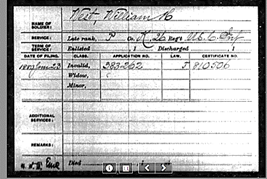 NAME OF SOLDIER: West, William H
SERVICE: Late rank, P Co. K, 26 Reg't U.S.C. Inf
TERM OF SERVICE: Enlisted , 1 Discharged , 1
DATE OF FILING. CLASS. APPLICATION NO. LAW. CERTIFICATE NO.
1880 June 23 Invalid, 383262 J 810506
Widow, c
Minor,
ADDITIONAL SERVICES:
REMARKS:
Died